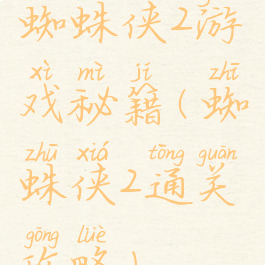 蜘蛛侠2游
xì mì jí zhī
戏秘籍(蜘
zhū xiá tōng guān
蛛侠2通关
gōng lüè
攻略)